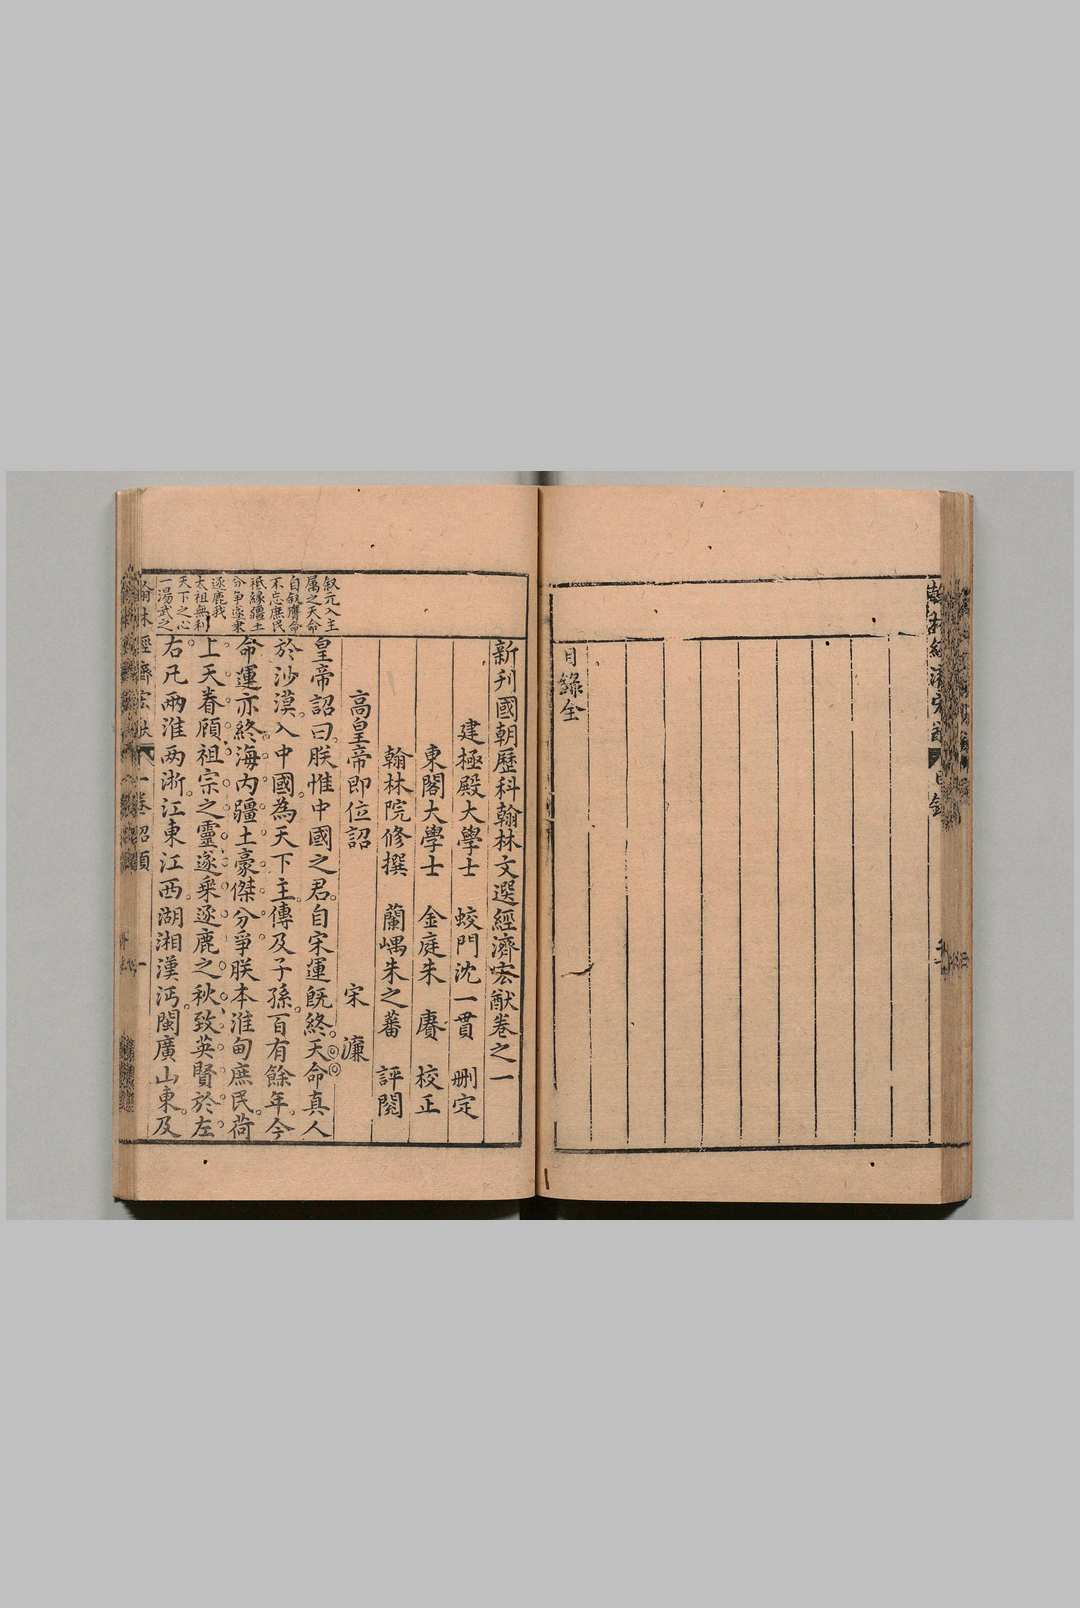 目錄全
新刊國朝歷科翰林文選經濟宏猷卷之一
建極殿大學士 蛟門沈一貫 刪定
東閣大學士 金庭朱 賡 校正
翰林院修撰 蘭嵎朱之蕃 評閱
高皇帝即位詔 宋 濂
皇帝詔曰朕惟中國之君自宋運既終天命真人
於沙漠入中國為天下主傳及子孫百有餘年今
命運亦終海內疆土豪傑分爭朕本淮甸庶民荷
上天眷顧祖宗之靈遂乘逐鹿之秋致英賢於左
右凡兩淮兩浙江東江西湖湘漢沔閩廣山東及
敘元入主
属之天命
自敘膺命
不忘庶民
祗緣疆土
分爭遂東
逐鹿我
太祖無利
天下之心
一湯武之
一卷 詔類
一